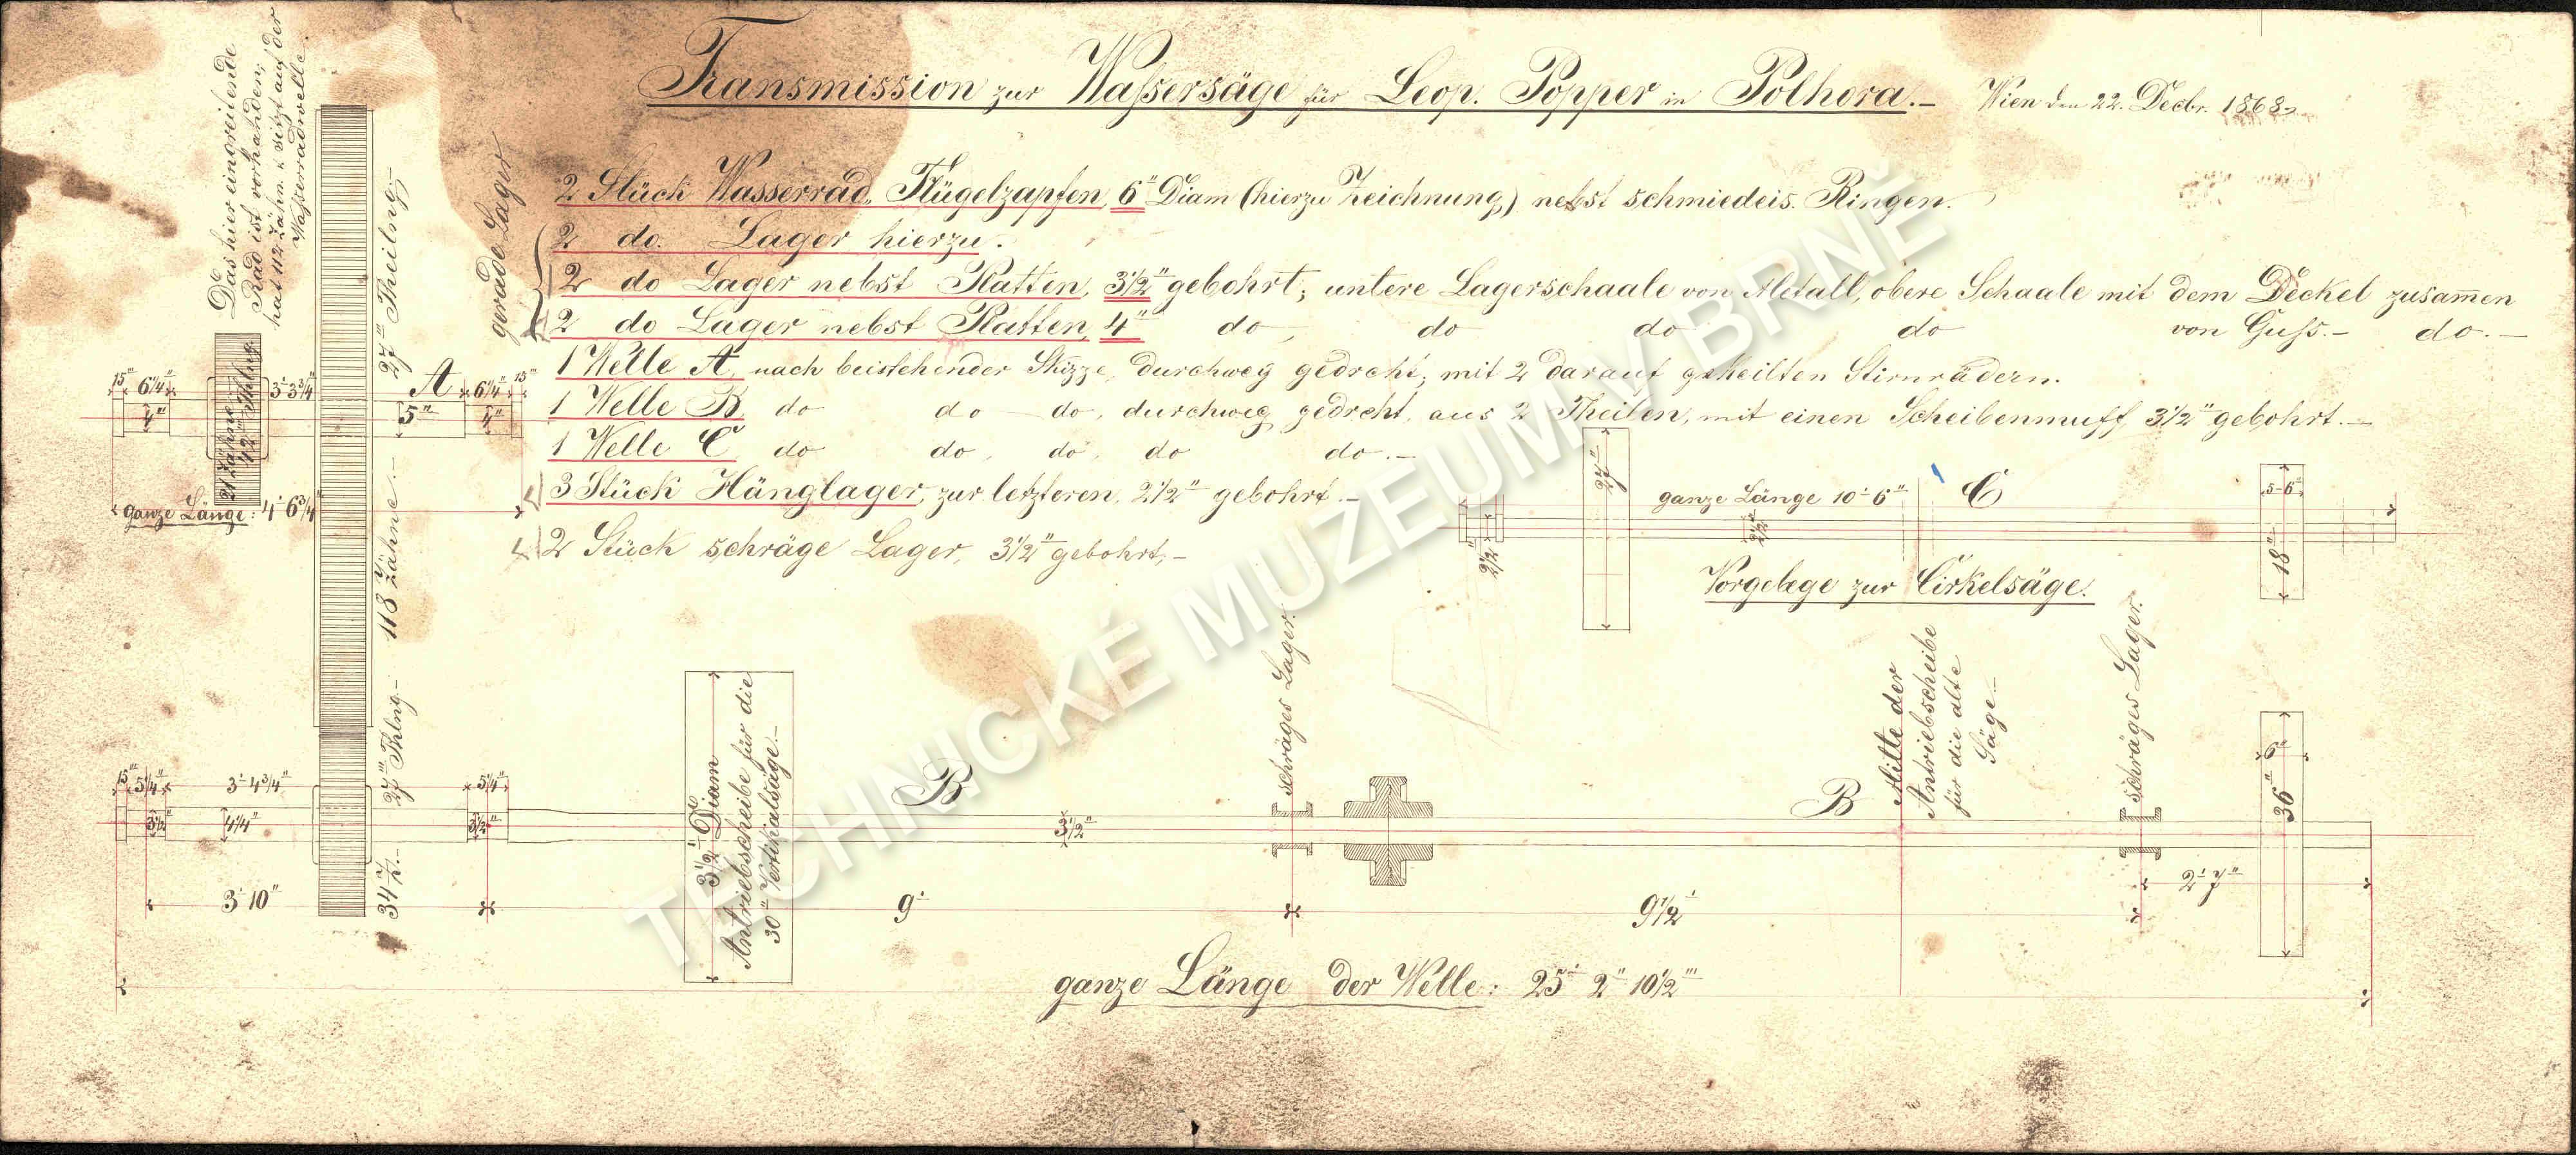 Transmission zur Waßersäge für Leop. Popper in Polhora.–
Wien den 22. Decbr. 1868.
2 Stück Wasserrad, Flügelzapfen, 6" Diam (hierzu Zeichnung) nebst schmiedeis. Ringen.
2 do. Lager hierzu.
2 do Lager nebst Platten, 3½" gebohrt; untere Lagerschaale von Metall, obere Schaale mit dem Deckel zusam̄en
2 do Lager nebst Platten, 4" do do do do von Guſs.– do.–
1 Welle A, nach beistehender Skizze, durchweg gedreht; mit 2 darauf gekeilten Stirnrädern.
1 Welle B, do do do, durchweg gedreht, aus 2 Theilen, mit einen Scheibenmuff 3½" gebohrt.–
1 Welle C do do, do, do do.–
3 Stück Hänglager, zur letzteren, 2½" gebohrt.–
2 Stück schräge Lager, 3½" gebohrt,–
gerade Lager
Das hier eingreifende
Rad ist vorhanden;
hat 112 Zähn. & sitzt auf der
Waßerradwelle.
27''' Theilng–
118 Zähne.–
21 Zähne
42''' Thlng
15''' 6¼" 3'-3¾" A 6¼" 15'''
4" 5" 4"
ganze Länge: 4' 6¾"
27"
ganze Länge 10'-6"
C
5-6"
2½"
2½"
18"
Vorgelege zur Cirkelsäge.
27''' Thlng–
34 Z.–
15''' 5¼" 3'-4¾" 5¼"
3½" 4¼" 3½"
3' 10"
3½' 6" Diam
Antriebscheibe für die
30" Vertikalsäge.–
B
3½"
schräges Lager.
B
Mitte der
Antriebscheibe
für die alte
Säge.–
schräges Lager.
6"
36"
9'
9½'
2' 7"
ganze Länge der Welle: 25' 2" 10½'''
TECHNICKÉ MUZEUM V BRNĚ